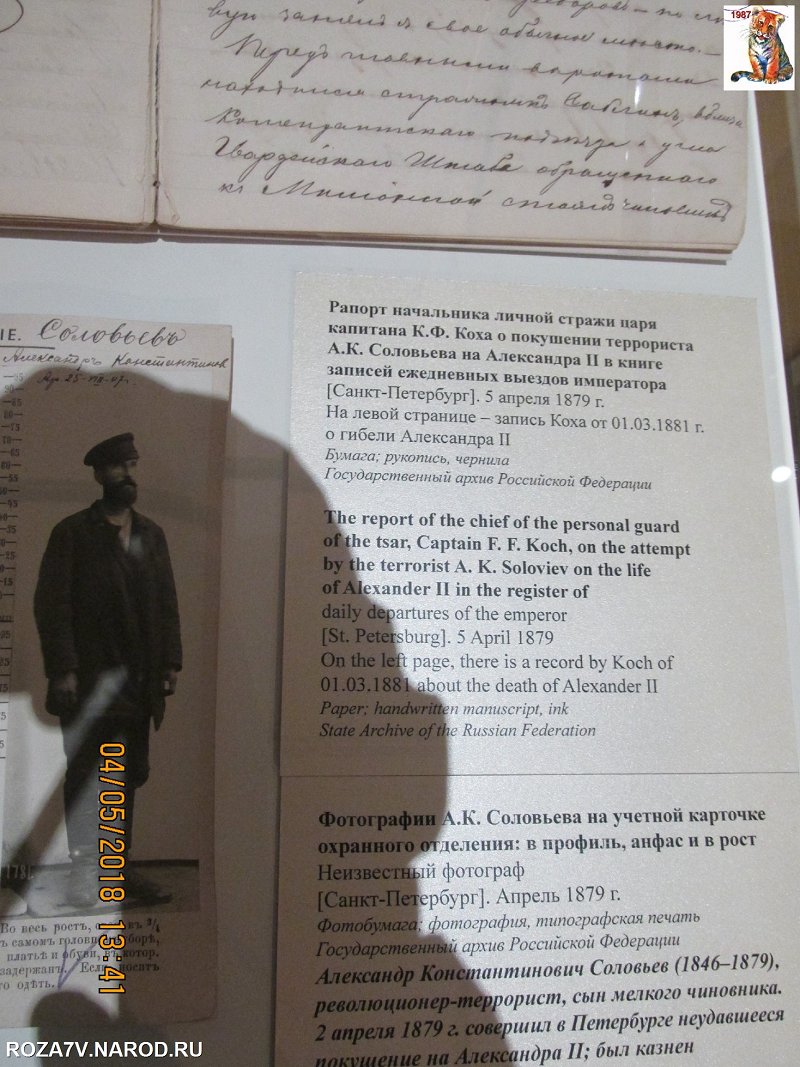 1987
вую занялъ свое обычное мѣсто.–
Передъ главными воротами
находился стражникъ Саблинъ,
Комендантскаго подъѣзда у угла
Гвардейскаго Штаба обращеннаго
къ Милліонной стоялъ
ІЕ. Соловьевъ
Александръ Константинов
Рапорт начальника личной стражи царя
капитана К.Ф. Коха о покушении террориста
А.К. Соловьева на Александра II в книге
записей ежедневных выездов императора
[Санкт-Петербург]. 5 апреля 1879 г.
На левой странице – запись Коха от 01.03.1881 г.
о гибели Александра II
Бумага; рукопись, чернила
Государственный архив Российской Федерации
The report of the chief of the personal guard
of the tsar, Captain F. F. Koch, on the attempt
by the terrorist A. K. Soloviev on the life
of Alexander II in the register of
daily departures of the emperor
[St. Petersburg]. 5 April 1879
On the left page, there is a record by Koch of
01.03.1881 about the death of Alexander II
Paper; handwritten manuscript, ink
State Archive of the Russian Federation
Фотографии А.К. Соловьева на учетной карточке
охранного отделения: в профиль, анфас и в рост
Неизвестный фотограф
[Санкт-Петербург]. Апрель 1879 г.
Фотобумага; фотография, типографская печать
Государственный архив Российской Федерации
Александр Константинович Соловьев (1846–1879),
революционер-террорист, сын мелкого чиновника.
2 апреля 1879 г. совершил в Петербурге неудавшееся
покушение на Александра II; был казнен
Во весь ростъ, въ ¾
ъ самомъ головн уборѣ,
платьѣ и обуви, въ котор.
задержанъ. Если носитъ
го одѣть.
04/05/2018 13:41
ROZA7V.NAROD.RU